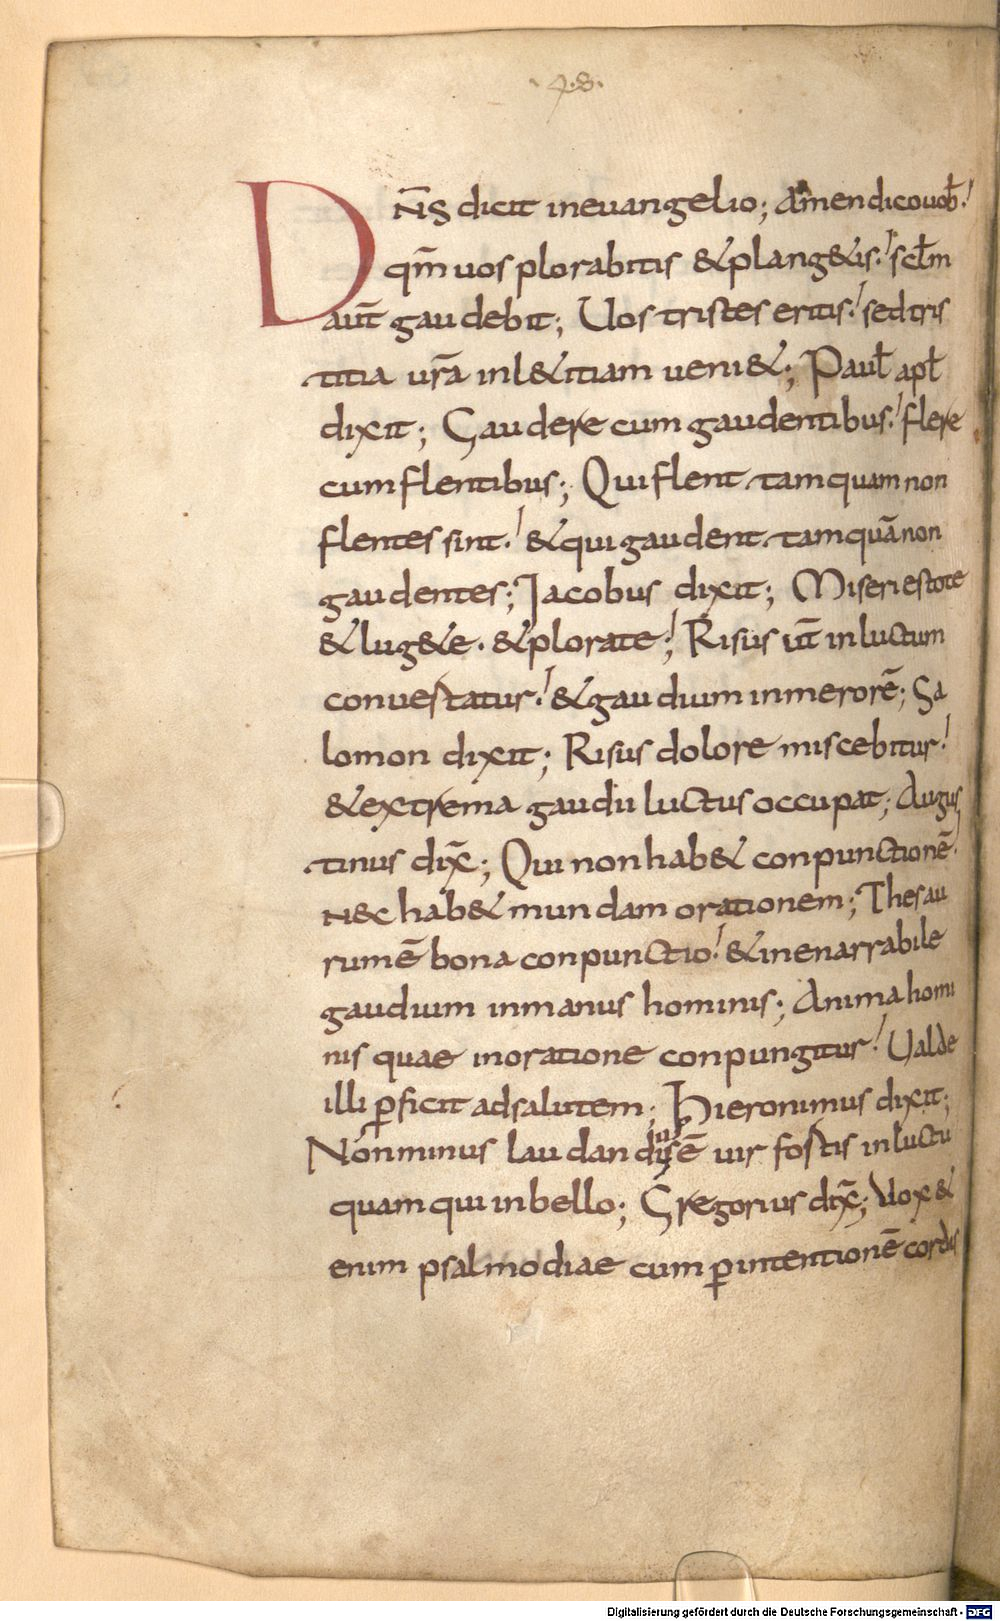 DN̄S dicit in euangelio; Amen dico uob̄
qm̄ uos plorabitis & plang&is; sclm̄
aut̄ gaudebit; Uos tristes eritis; sed tris
titia ur̄a in l&itiam ueni&; Paul̄ apl̄
dixit; Gaudere cum gaudentibus; flere
cum flentibus; Qui flent tamquam non
flentes sint; & qui gaudent tamquā non
gaudentes; Jacobus dixit; Miseri estote
& lug&e · & plorate; Risus ur̄ in luctum
conuertatur; & gaudium in merorē; Sa
lomon dixit; Risus dolore miscebitur;
& extrema gaudii luctus occupat; Augus
tinus dix̄; Qui non hab& conpunctionē·
n&c hab& mundam orationem; Thesau
rum ē bona conpunctio; & inenarrabile
gaudium in manus hominis; Anima homi
nis quae in oratione conpungitur; Ualde
illi p̱ficit ad salutem; Hieronimus dixit;
Non minus laudandus ē uir fortis in luctu
quam qui in bello; Gregorius dix̄; Uox &
enim psalmodiae cum p̱ intentionē cordis
Digitalisierung gefördert durch die Deutsche Forschungsgemeinschaft - DFG